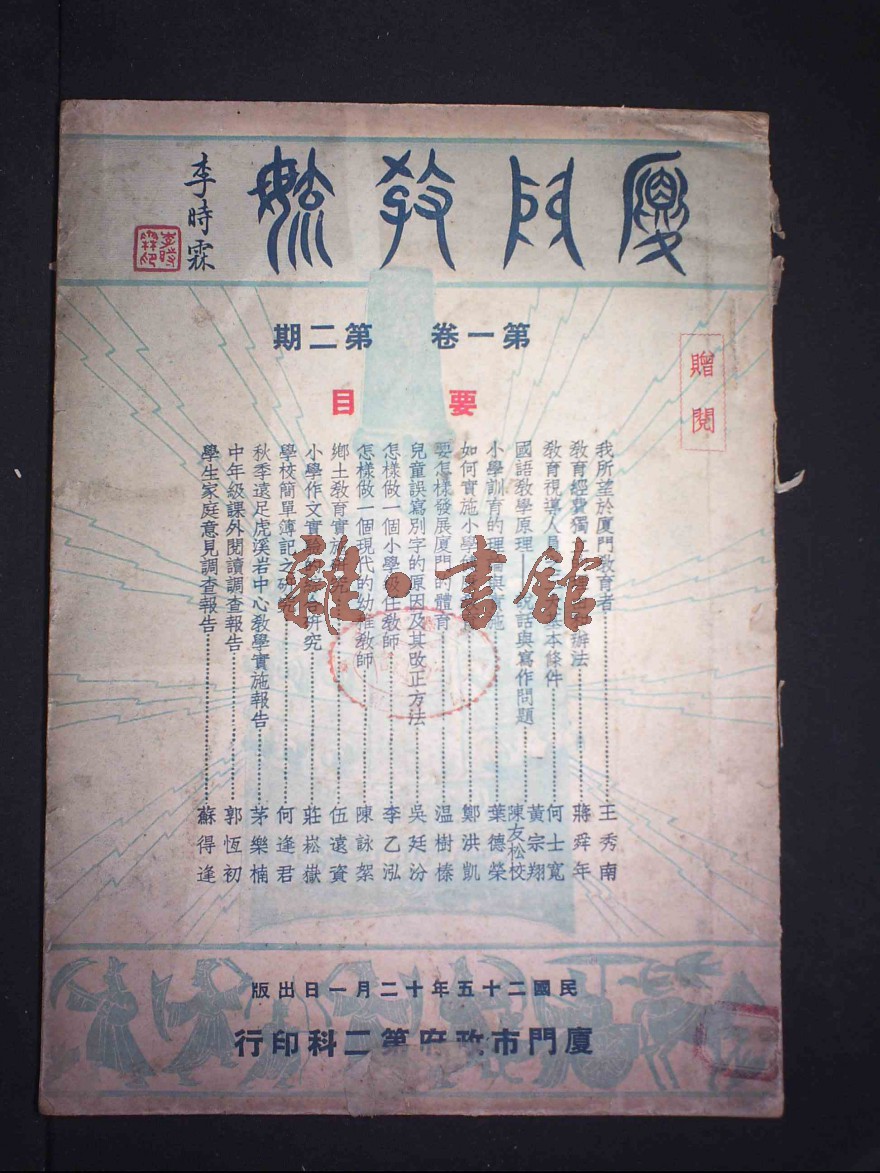 廈門教育
李時霖
贈閱
第一卷 第二期
要目
我所望於廈門教育者 王秀南
教育經費獨 辦法 蔣舜年
教育視導人員 基本條件 何士寬
國語教學原理——說話與寫作問題 黃宗翔 陳友松校
小學訓育的理論與實施 葉德榮
如何實施小學 鄭洪凱
要怎樣發展廈門的體育 温樹榛
兒童誤寫別字的原因及其改正方法 吳廷汾
怎樣做一個小學級任教師 李乙泓
怎樣做一個現代的幼稚教師 陳詠絮
鄉土教育實施 伍遠資
小學作文實驗 研究 莊崧嶽
學校簡單簿記之研究 何逢君
秋季遠足虎溪岩中心教學實施報告 茅樂楠
中年級課外閱讀調查報告 郭恆初
學生家庭意見調查報告 蘇得逢
雜·書館
民國二十五年十二月一日出版
廈門市政府第二科印行